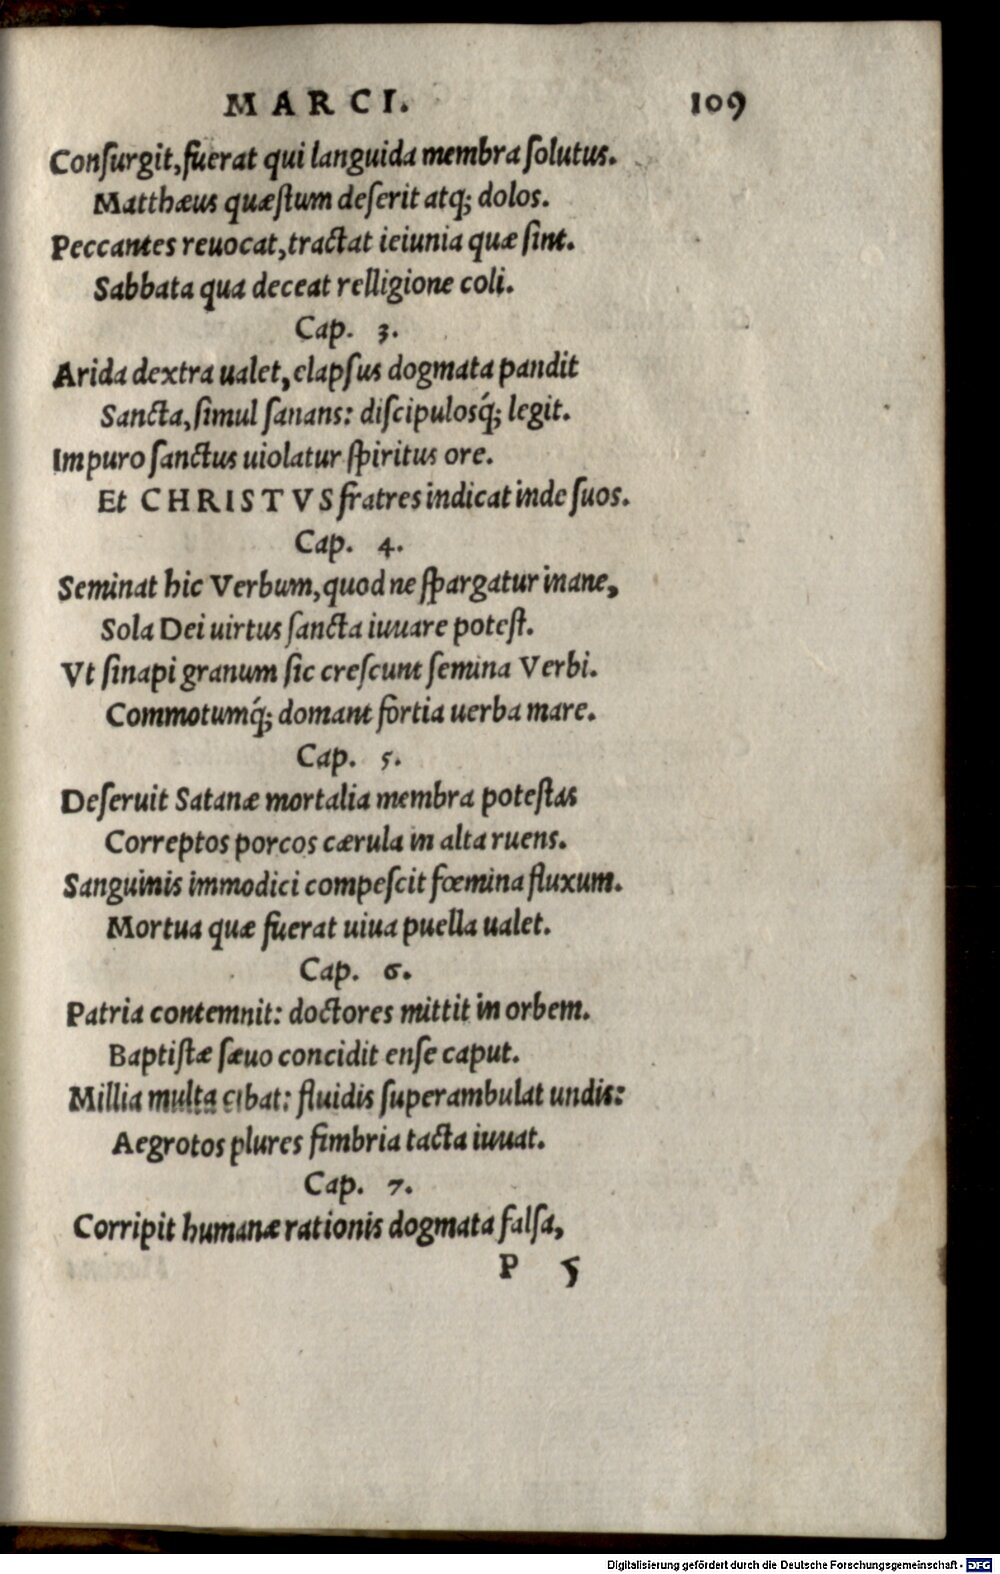 MARCI. 109
Conſurgit, fuerat qui languida membra ſolutus.
Matthæus quæſtum deſerit atq; dolos.
Peccantes reuocat, tractat ieiunia quæ ſint.
Sabbata qua deceat relligione coli.
Cap. 3.
Arida dextra ualet, elapſus dogmata pandit
Sancta, ſimul ſanans: diſcipulosq́; legit.
Impuro ſanctus uiolatur ſpiritus ore.
Et CHRISTVS fratres indicat inde ſuos.
Cap. 4.
Seminat hic Verbum, quod ne ſpargatur inane,
Sola Dei uirtus ſancta iuuare poteſt.
Vt ſinapi granum ſic creſcunt ſemina Verbi.
Commotumq́; domant fortia uerba mare.
Cap. 5.
Deſeruit Satanæ mortalia membra poteſtas
Correptos porcos cærula in alta ruens.
Sanguinis immodici compeſcit fœmina fluxum.
Mortua quæ fuerat uiua puella ualet.
Cap. 6.
Patria contemnit: doctores mittit in orbem.
Baptiſtæ ſæuo concidit enſe caput.
Millia multa cibat: fluidis ſuperambulat undis:
Aegrotos plures fimbria tacta iuuat.
Cap. 7.
Corripit humanæ rationis dogmata falſa,
P 5
Digitalisierung gefördert durch die Deutsche Forschungsgemeinschaft - DFG